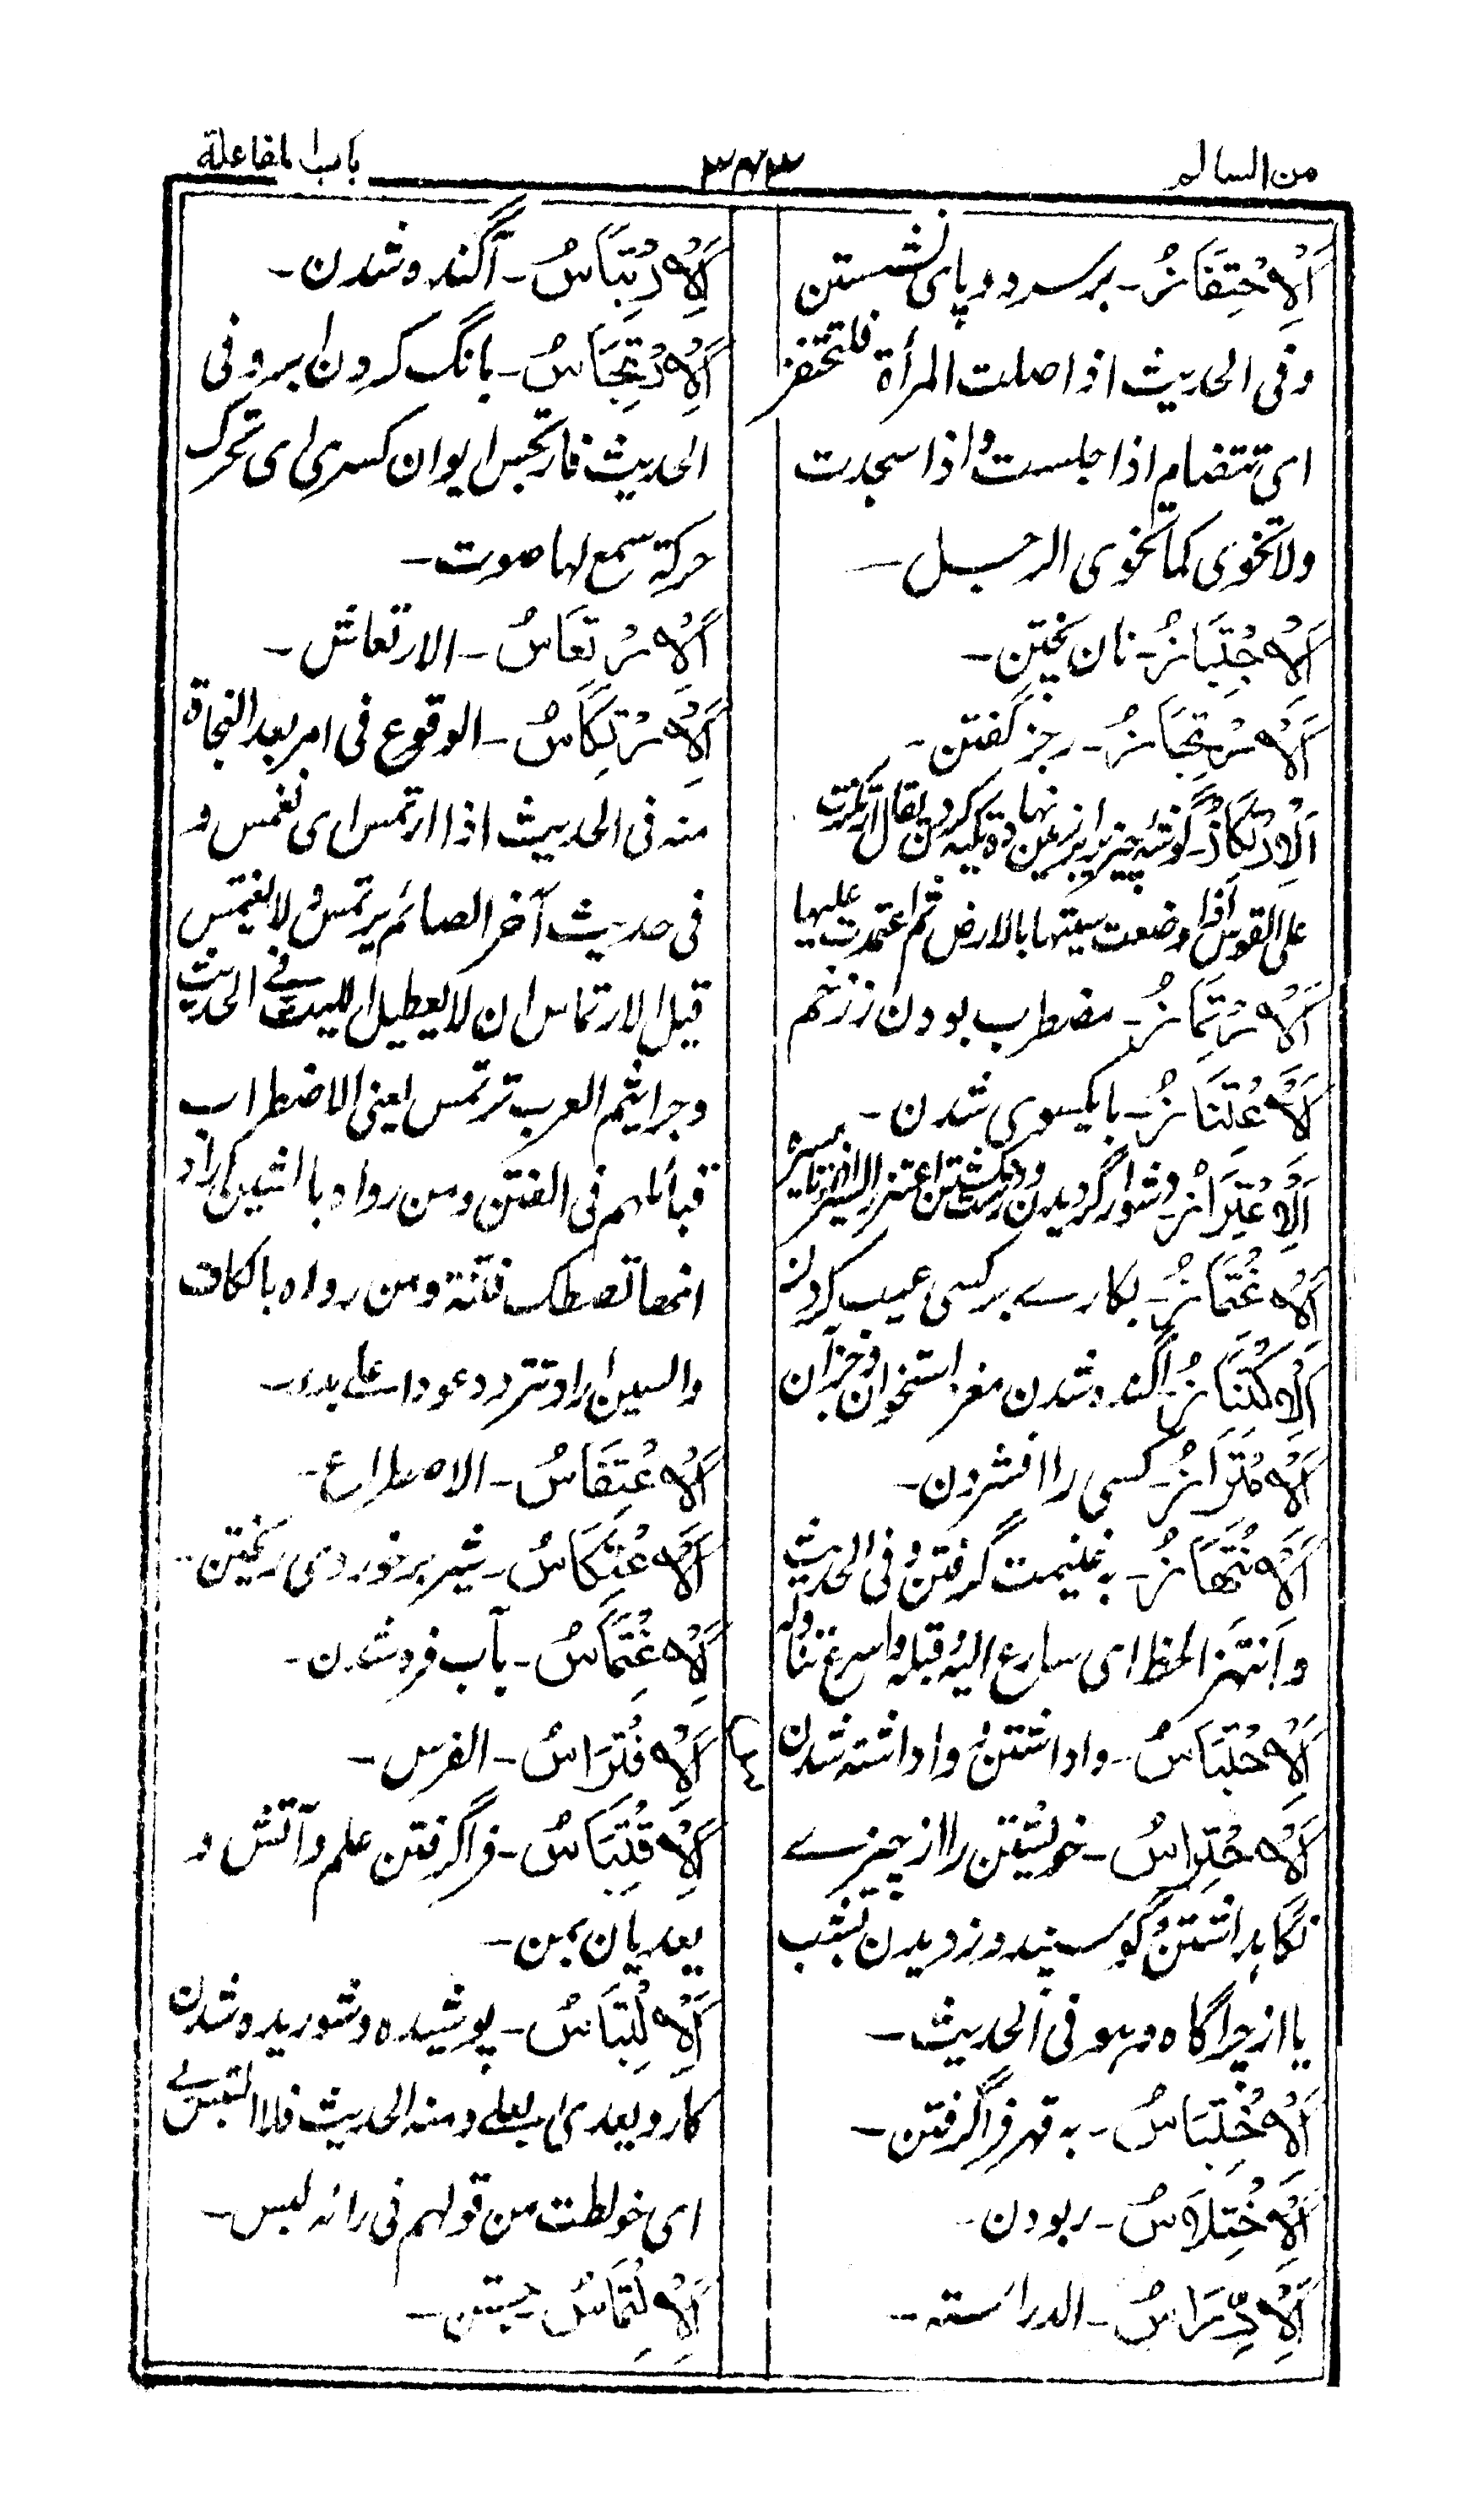 من السالم
۳۶۳
باب المفاعلة
اَلْاِحْتِفَازُ۔ برسر دو پای نشستن
وفی الحدیث اذا صلت المرأة فلتحتفز
ای تتضام اذا جلست و اذا سجدت
ولا تخوی کما تخوی الرجل۔
اَلْاِخْتِبَازُ۔ نان پختن۔
اَلْاِرْتِجَازُ۔ رجز گفتن۔
اَلْاِرْتِكَازُ۔ گوشهٔ چیز برزمین نهاده تکیه کردن یقال ارتکزت
علی القوس اذا وضعت سیتها بالارض ثم اعتمدت علیها
اَلْاِرْتِمَازُ۔ مضطرب بودن از زخم
اَلْاِعْتِنَازُ۔ بایکسوی شدن۔
اَلْاِعْتِرَازُ۔ دشوار گردیدن
اَلْاِغْتِمَازُ۔ بکارے بر کسی عیب کردن
اَلْاِكْتِنَازُ۔ آگنده شدن مغز استخوان و جز آن
اَلْاِمْتِرَازُ۔ کسی را افشردن۔
اَلْاِنْتِهَازُ۔ به غنیمت گرفتن و فی الحدیث
وانتهز الحظ ای سارع الیه قبله واسرع تناوله
اَلْاِحْتِبَاسُ۔ واداشتن و واداشته شدن
اَلْاِحْتِرَاسُ۔ خویشتن را از چیزے
نگاہداشتن و گوسپند دزدیدن بشب
یا از چراگاه و هو فی الحدیث۔
اَلْاِخْتِبَاسُ۔ به قهر فراگرفتن۔
اَلْاِخْتِلَاسُ۔ ربودن۔
اَلْاِدِّرَاسُ۔ الدراسته۔
اَلْاِرْتِبَاسُ۔ آگنده شدن۔
اَلْاِرْتِجَاسُ۔ بانگ کردن ابر و فی
الحدیث فارتجس ایوان کسری ای تحرک
حرکة سمع لها صوت۔
اَلْاِرْتِعَاسُ۔ الارتعاش۔
اَلْاِرْتِكَاسُ۔ الوقوع فی امر بعد النجاة
منه فی الحدیث اذا ارتمس ای نغمس و
فی حدیث آخر الصائم یرتمس ولا یغتمس
قیل الارتماس ان لا یطیل اللبث و فی الحدیث
وجراثیم العرب ترتمس یعنی الاضطراب
قبائلهم فی الفتن ومن رواه بالشین اراد
انها تصطک فتنة ومن رواه بالکاف
والسین اراد تتردد عودا علی بدء۔
اَلْاِعْتِفَاسُ۔ الاصطراع۔
اَلْاِعْتِكَاسُ۔ شیر بر خوردی ریختن۔
اَلْاِغْتِمَاسُ۔ بآب فروشدن۔
اَلْاِفْتِرَاسُ۔ الفرس۔
اَلْاِقْتِبَاسُ۔ فراگرفتن علم و آتش و
یعدیان بمن۔
اَلْاِلْتِبَاسُ۔ پوشیده و شوریده شدن
کار و یعدی بعلی و منه الحدیث فلا التبس لے
ای خولطت من قولهم فی رائه لبس۔
اَلْاِلْتِمَاسُ۔ جستن۔